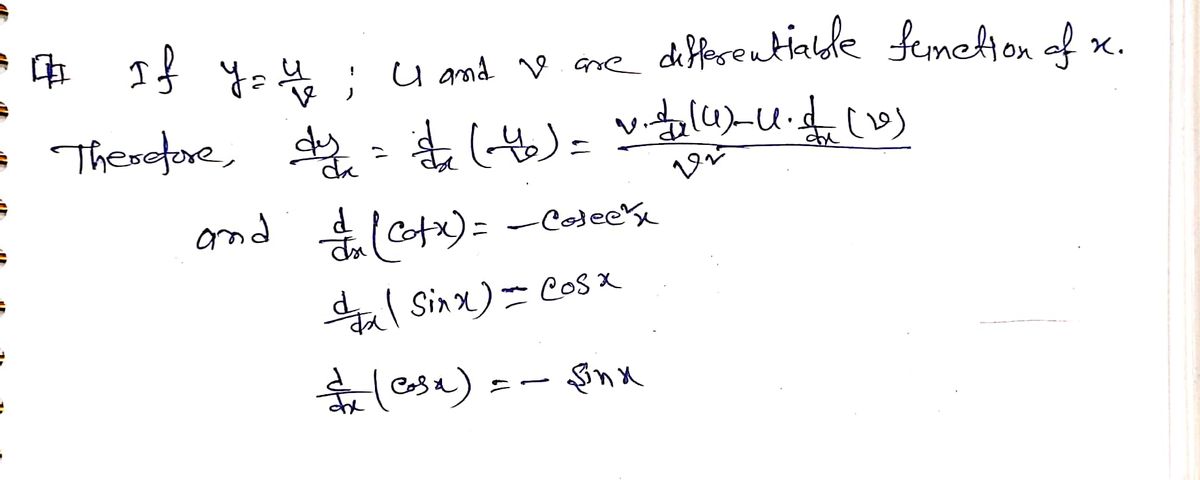 If y = u/v ; u and v are differentiable function of x.
Therefore, dy/dx = d/dx (u/v) = (v. d/dx (u) - u. d/dx (v)) / v²
and d/dx (Cotx) = - Cosec²x
d/dx (Sinx) = Cosx
d/dx (Cosx) = - Sinx